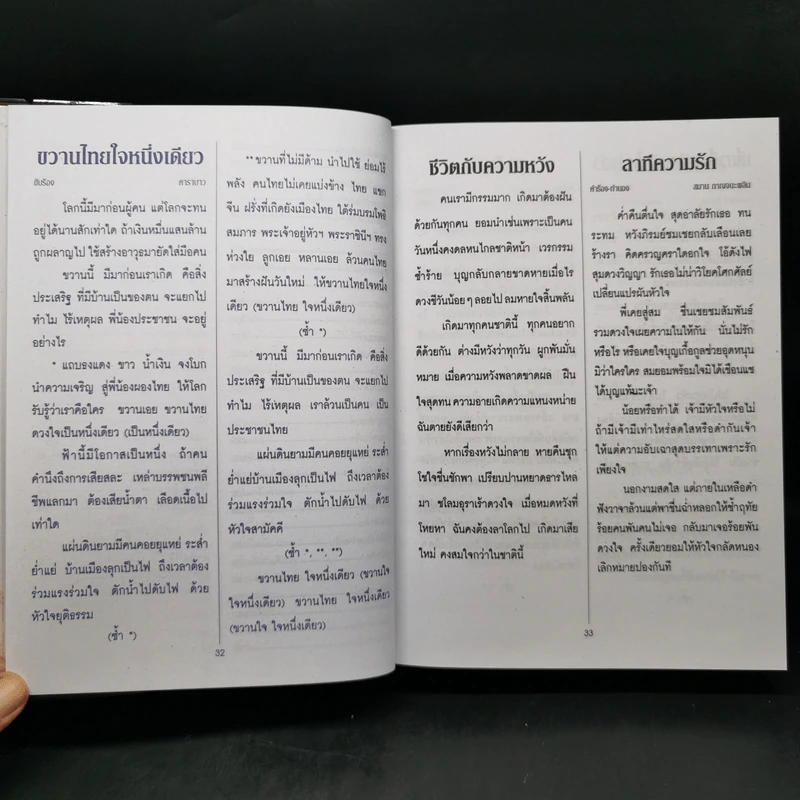 ขวานไทยใจหนึ่งเดียว
ขับร้อง คาราบาว
โลกนี้มีมาก่อนผู้คน แต่โลกจะทน
อยู่ได้นานสักเท่าใด ถ้าเงินหมื่นแสนล้าน
ถูกผลาญไป ใช้สร้างอาวุธมายัดใส่มือคน
ขวานนี้ มีมาก่อนเราเกิด คือสิ่ง
ประเสริฐ ที่มีบ้านเป็นของตน จะแยกไป
ทำไม ไร้เหตุผล พี่น้องประชาชน จะอยู่
อย่างไร
* แถบธงแดง ขาว น้ำเงิน จงโบก
นำความเจริญ สู่พี่น้องผองไทย ให้โลก
รับรู้ว่าเราคือใคร ขวานเอย ขวานไทย
ดวงใจเป็นหนึ่งเดียว (เป็นหนึ่งเดียว)
ฟ้านี้มีโอกาสเป็นหนึ่ง ถ้าคน
คำนึงถึงการเสียสละ เหล่าบรรพชนพลี
ชีพแลกมา ต้องเสียน้ำตา เลือดเนื้อไป
เท่าใด
แผ่นดินยามมีคนคอยยุแหย่ ระส่ำ
ย่ำแย่ บ้านเมืองลุกเป็นไฟ ถึงเวลาต้อง
ร่วมแรงร่วมใจ ตักน้ำไปดับไฟ ด้วย
หัวใจยุติธรรม
(ซ้ำ *)
** ขวานที่ไม่มีด้าม นำไปใช้ ย่อมไร้
พลัง คนไทยไม่เคยแบ่งข้าง ไทย แขก
จีน ฝรั่งที่เกิดยังเมืองไทย ใต้ร่มบรมโพธิ
สมภาร พระเจ้าอยู่หัวฯ พระราชินีฯ ทรง
ห่วงใย ลูกเอย หลานเอย ล้วนคนไทย
มาสร้างฝันวันใหม่ ให้ขวานไทยใจหนึ่ง
เดียว (ขวานไทย ใจหนึ่งเดียว)
(ซ้ำ *)
ขวานนี้ มีมาก่อนเราเกิด คือสิ่ง
ประเสริฐ ที่มีบ้านเป็นของตน จะแยกไป
ทำไม ไร้เหตุผล เราล้วนเป็นคน เป็น
ประชาชนไทย
แผ่นดินยามมีคนคอยยุแหย่ ระส่ำ
ย่ำแย่บ้านเมืองลุกเป็นไฟ ถึงเวลาต้อง
ร่วมแรงร่วมใจ ตักน้ำไปดับไฟ ด้วย
หัวใจสามัคคี
(ซ้ำ *, **, **)
ขวานไทย ใจหนึ่งเดียว (ขวานใจ
ใจหนึ่งเดียว) ขวานไทย ใจหนึ่งเดียว
(ขวานใจ ใจหนึ่งเดียว)
32
ชีวิตกับความหวัง
คนเรามีกรรมมาก เกิดมาต้องฝัน
ด้วยกันทุกคน ยอมนำเช่นเพราะเป็นคน
วันหนึ่งคงดลหนไกลชาติหน้า เวรกรรม
ซ้ำร้าย บุญกลับกลายขาดหายเมื่อไร
ดวงชีวันน้อยๆ ลอยไป ลมหายใจสิ้นพลัน
เกิดมาทุกคนชาตินี้ ทุกคนอยาก
ดีด้วยกัน ต่างมีหวังว่าทุกวัน ผูกพันมั่น
หมาย เมื่อความหวังพลาดขาดผล ฝืน
ใจสุดทน ความอายเกิดความแหนงหน่าย
ฉันตายยังดีเสียกว่า
หากเรื่องหวังไม่กลาย หายคืนชุก
โชใจชื่นชักพา เปรียบปานหยาดธารไหล
มา ชโลมอุราเร้าดวงใจ เมื่อหมดหวังที่
โหยหา ฉันคงต้องลาโลกไป เกิดมาเสีย
ใหม่ คงสมใจกว่าในชาตินี้
ลาทีความรัก
คำร้อง-ทำนอง สมาน กาญจนะผลิน
ค่ำคืนตื่นใจ สุดอาลัยรักเธอ ทน
ระทม หวังภิรมย์ชมเชยกลับเลือนเลย
ร้างรา คิดครวญคราใดอกใจ โอ้ดังไฟ
สุมดวงวิญญา รักเธอไม่น่าวิโยคโศกศัลย์
เปลี่ยนแปรผันหัวใจ
พี่เคยสู่สม ชื่นเชยชมสัมพันธ์
รวมดวงใจเผยความในให้กัน นั่นไม่รัก
หรือไร หรือเคยใจบุญเกื้อกูลช่วยอุดหนุน
มิว่าใครใคร สมยอมพร้อมใจมิได้เชือนแช
ได้บุญแท้นะเจ้า
น้อยหรือทำได้ เจ้ามีหัวใจหรือไม่
ถ้ามีเจ้ามีเท่าไหร่สดใสหรือดำกันเจ้า
ให้แต่ความอับเฉาสุดบรรเทาเพราะรัก
เพียงใจ
นอกงามสดใส แต่ภายในเหลือดำ
ฟังวาจาล้วนแต่พาชื่นฉ่ำหลอกให้ช้ำฤทัย
ร้อยคนพันคนไม่เจอ กลับมาเจอร้อยพัน
ดวงใจ ครั้งเดียวยอมให้หัวใจกลัดหนอง
เลิกหมายปองกันที
33